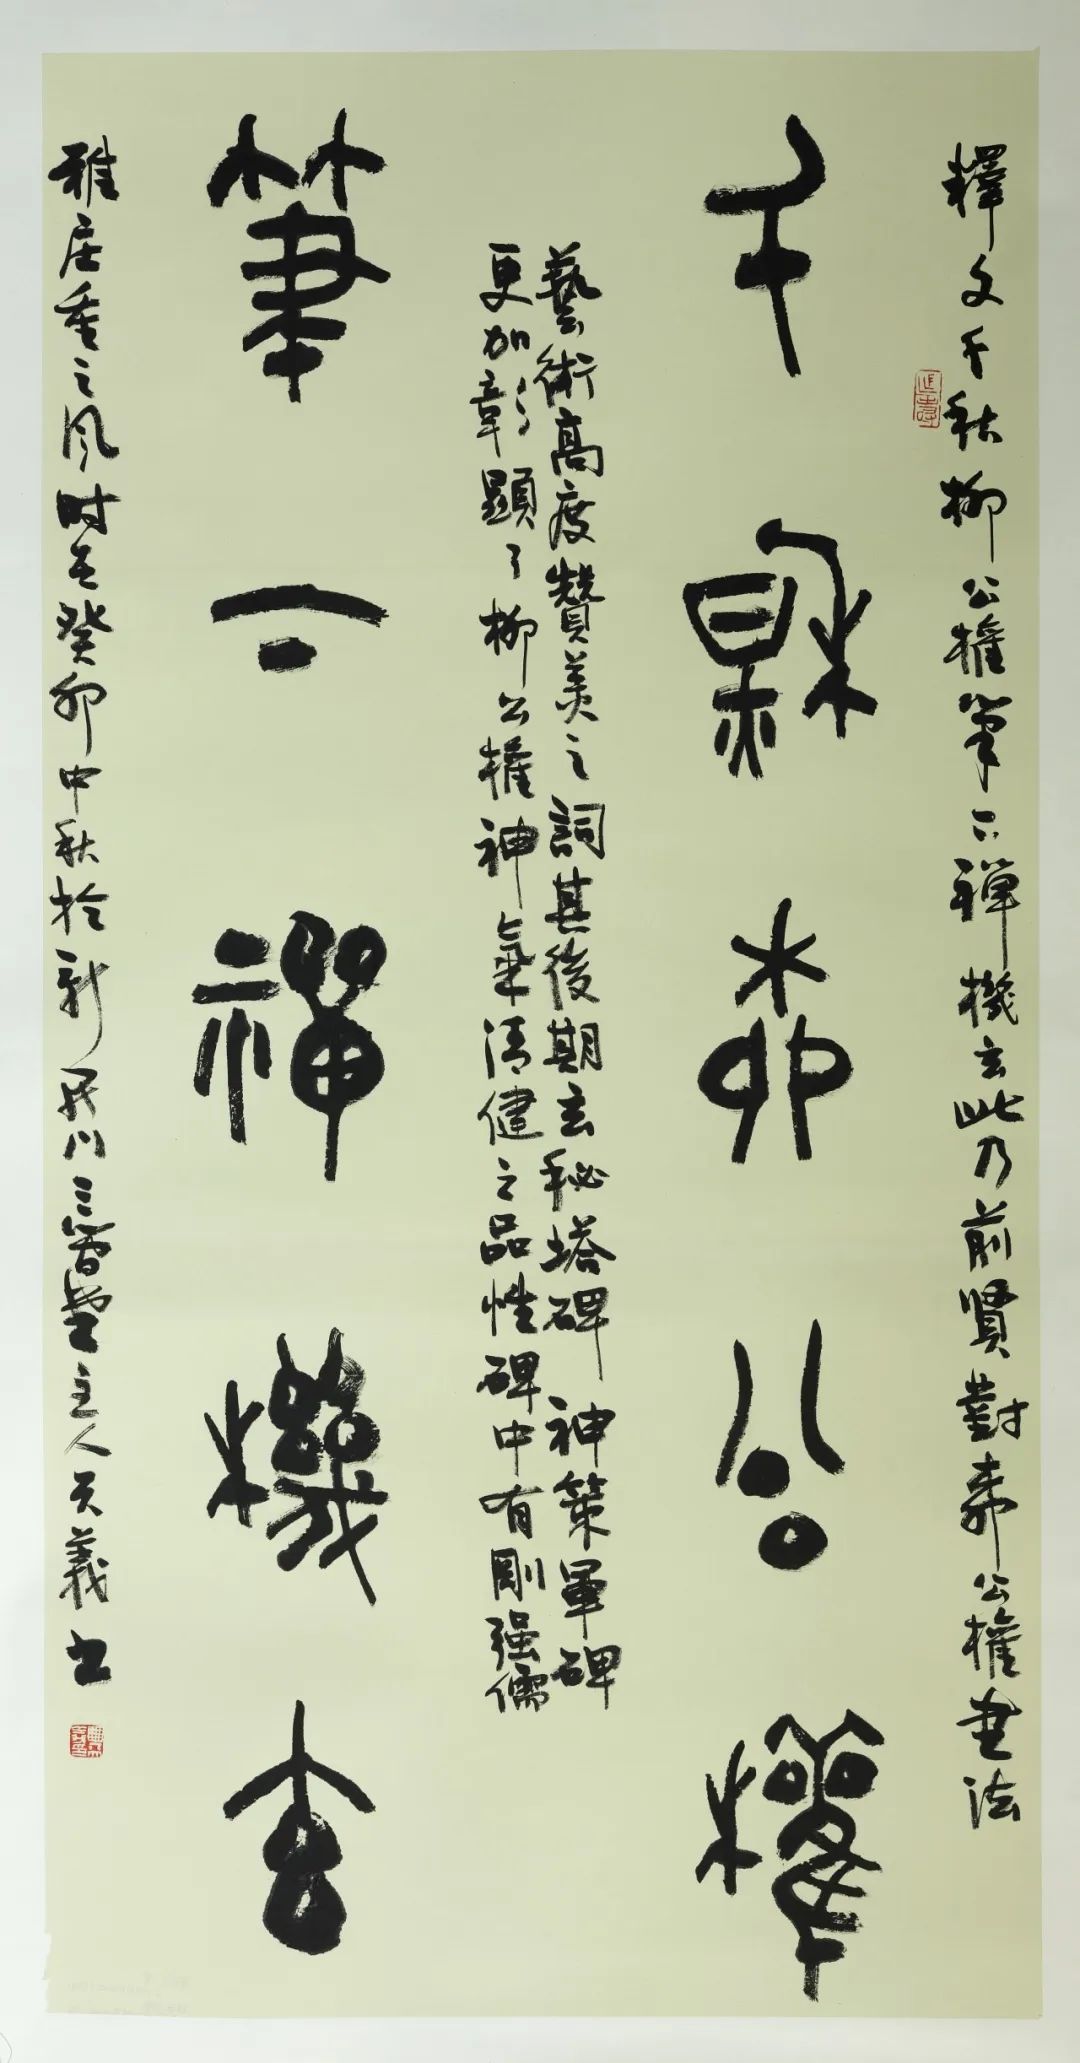 釋文千秋柳公權筆下禪機玄此乃前賢對柳公權書法
千秋柳公權
藝術高度贊美之詞其後期玄秘塔碑神策軍碑
更加彰顯了柳公權神氣清健之品性碑中有剛强儒
筆下禪機玄
雅居重之風时在癸卯中秋於新川三堂主人天義書